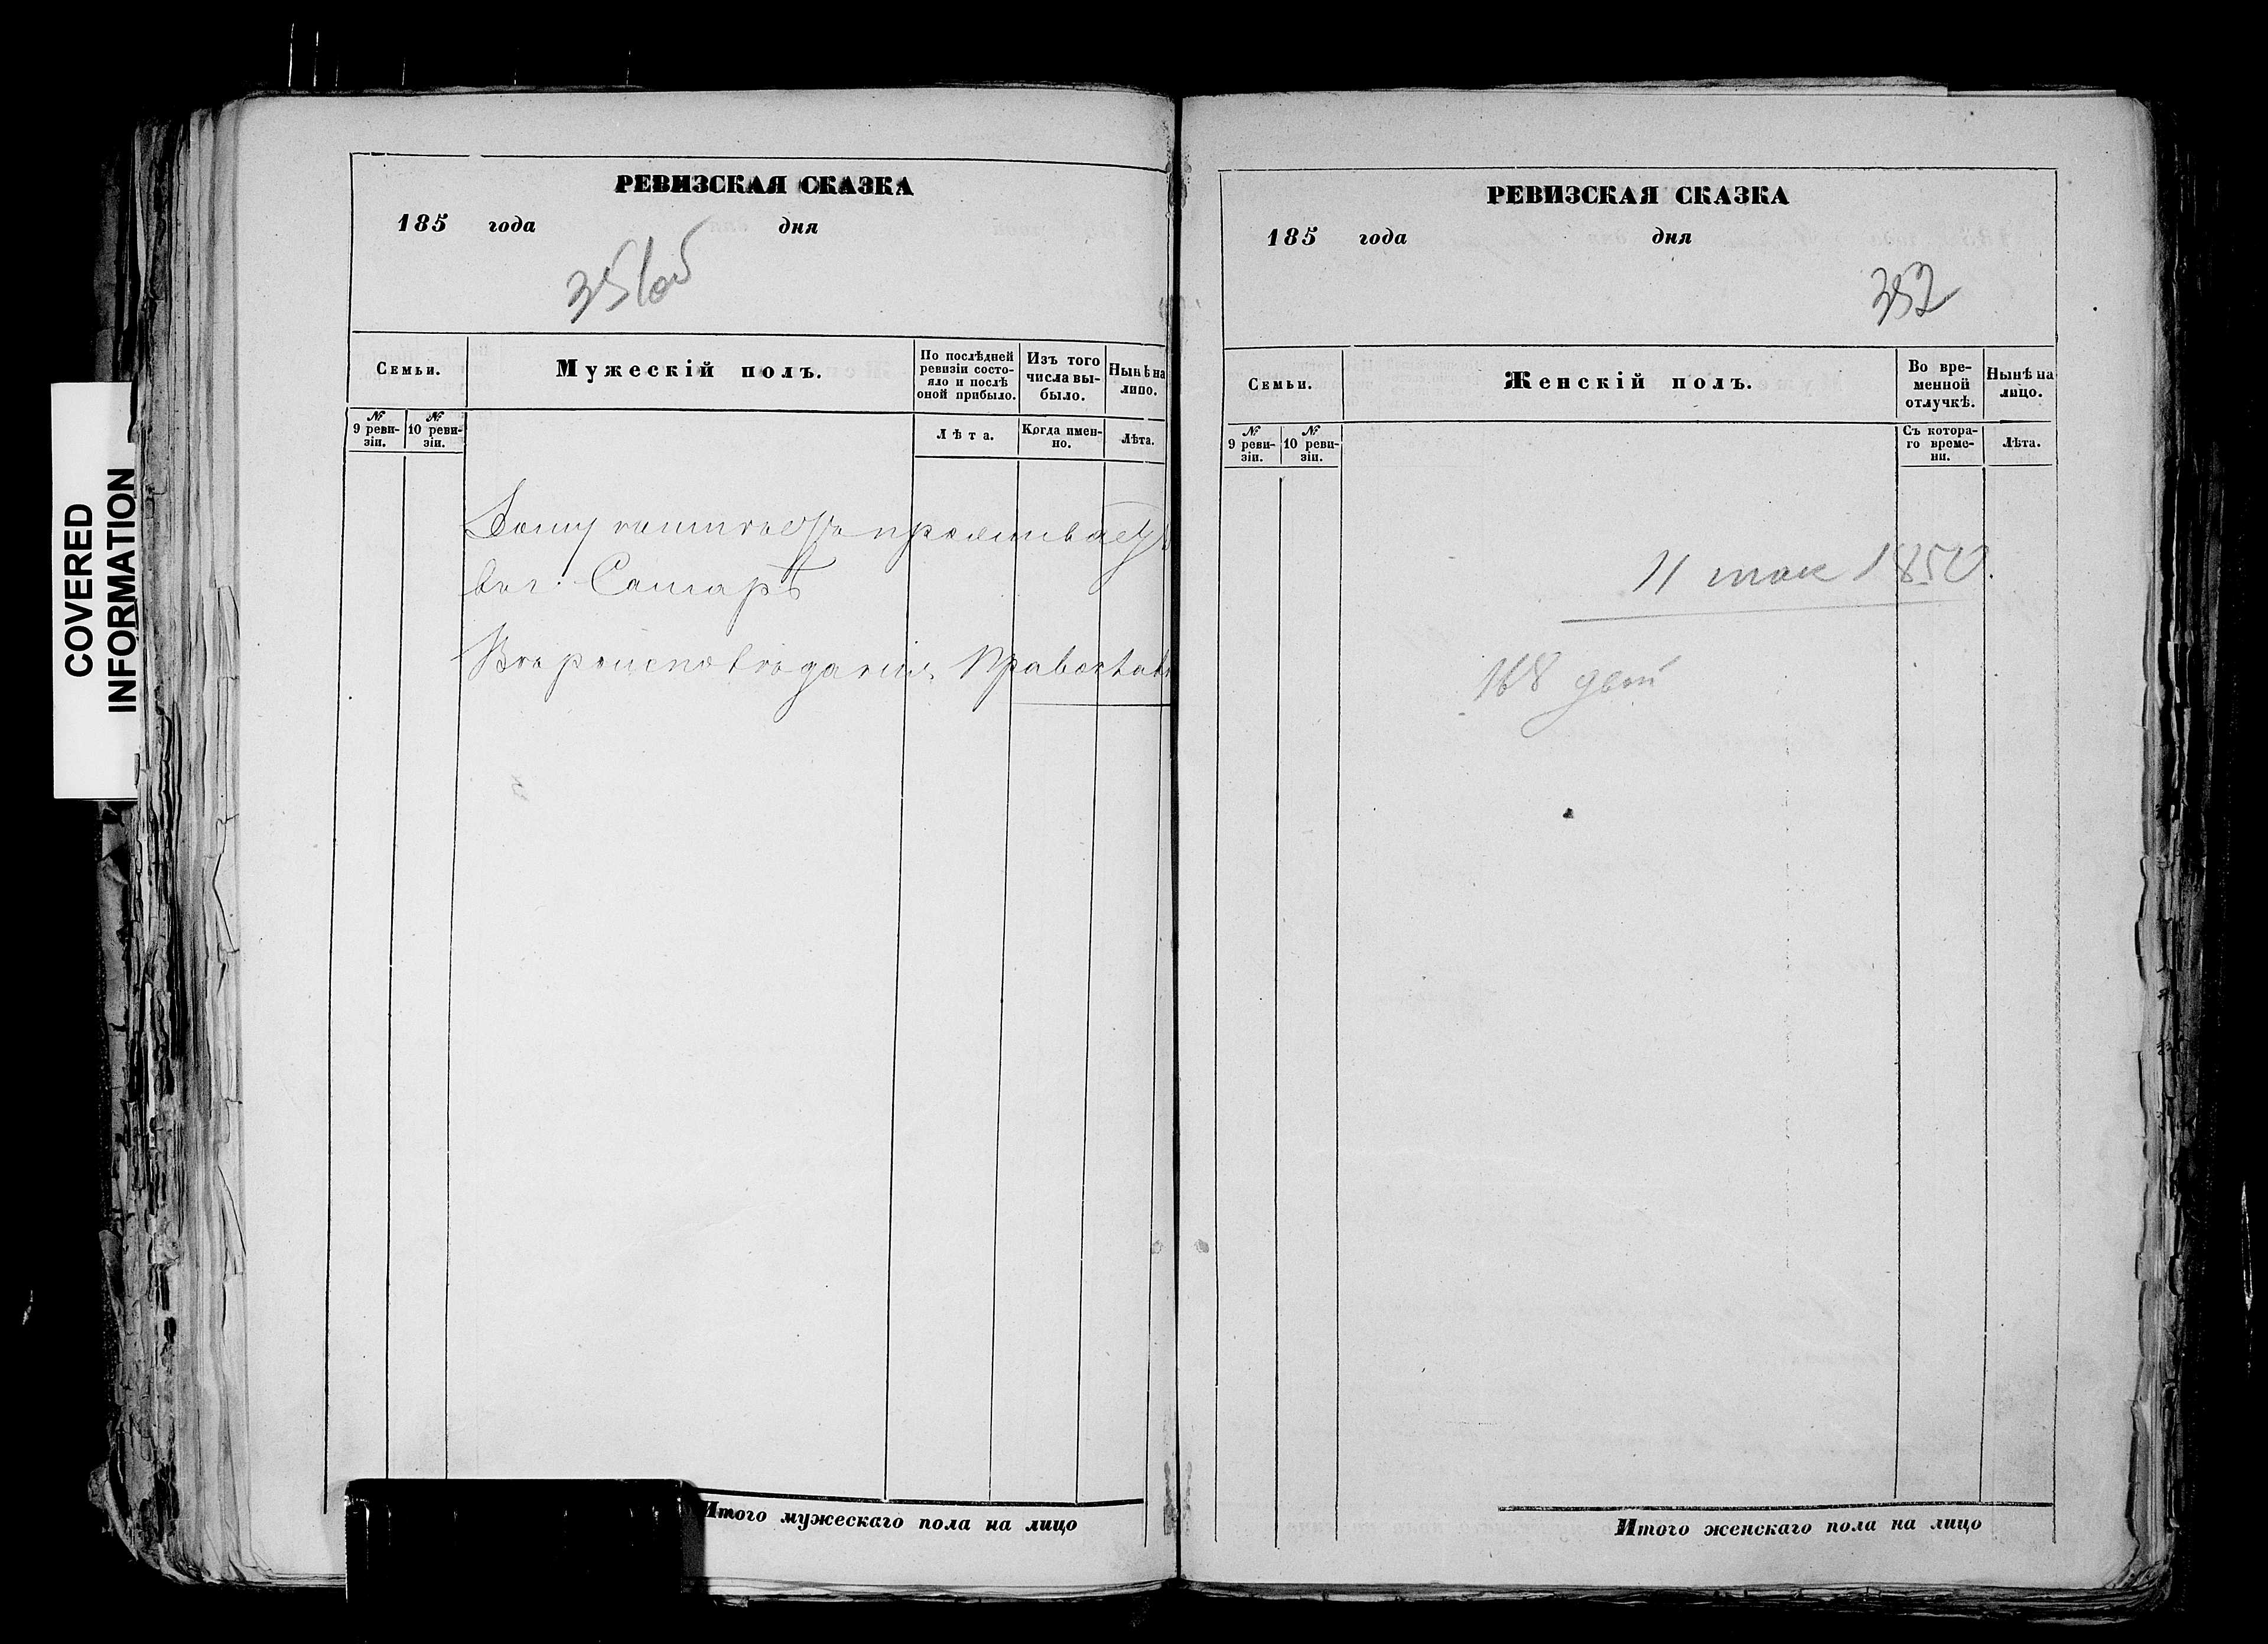 COVERED
INFORMATION
РЕВИЗСКАЯ СКАЗКА
185 года дня
351об
Семьи.
Мужескій полъ.
По послѣдней ревизіи состо-
яло и послѣ оной прибыло.
Изъ того числа вы-
было.
Нынѣ на лицо.
№ 9 реви-
зіи.
№ 10 реви-
зіи.
Лѣта.
Когда имен-
но.
Лѣта.
проживаетъ
въ г. Самарѣ
Вѣроисповѣданія Православн
Итого мужескаго пола на лицо
РЕВИЗСКАЯ СКАЗКА
185 года дня
352
Семьи.
Женскій полъ.
Во вре-
менной
отлучкѣ.
Нынѣ на
лицо.
№ 9 реви-
зіи.
№ 10 реви-
зіи.
Съ котора-
го време-
ни.
Лѣта.
11 мая 1850.
168
Итого женскаго пола на лицо